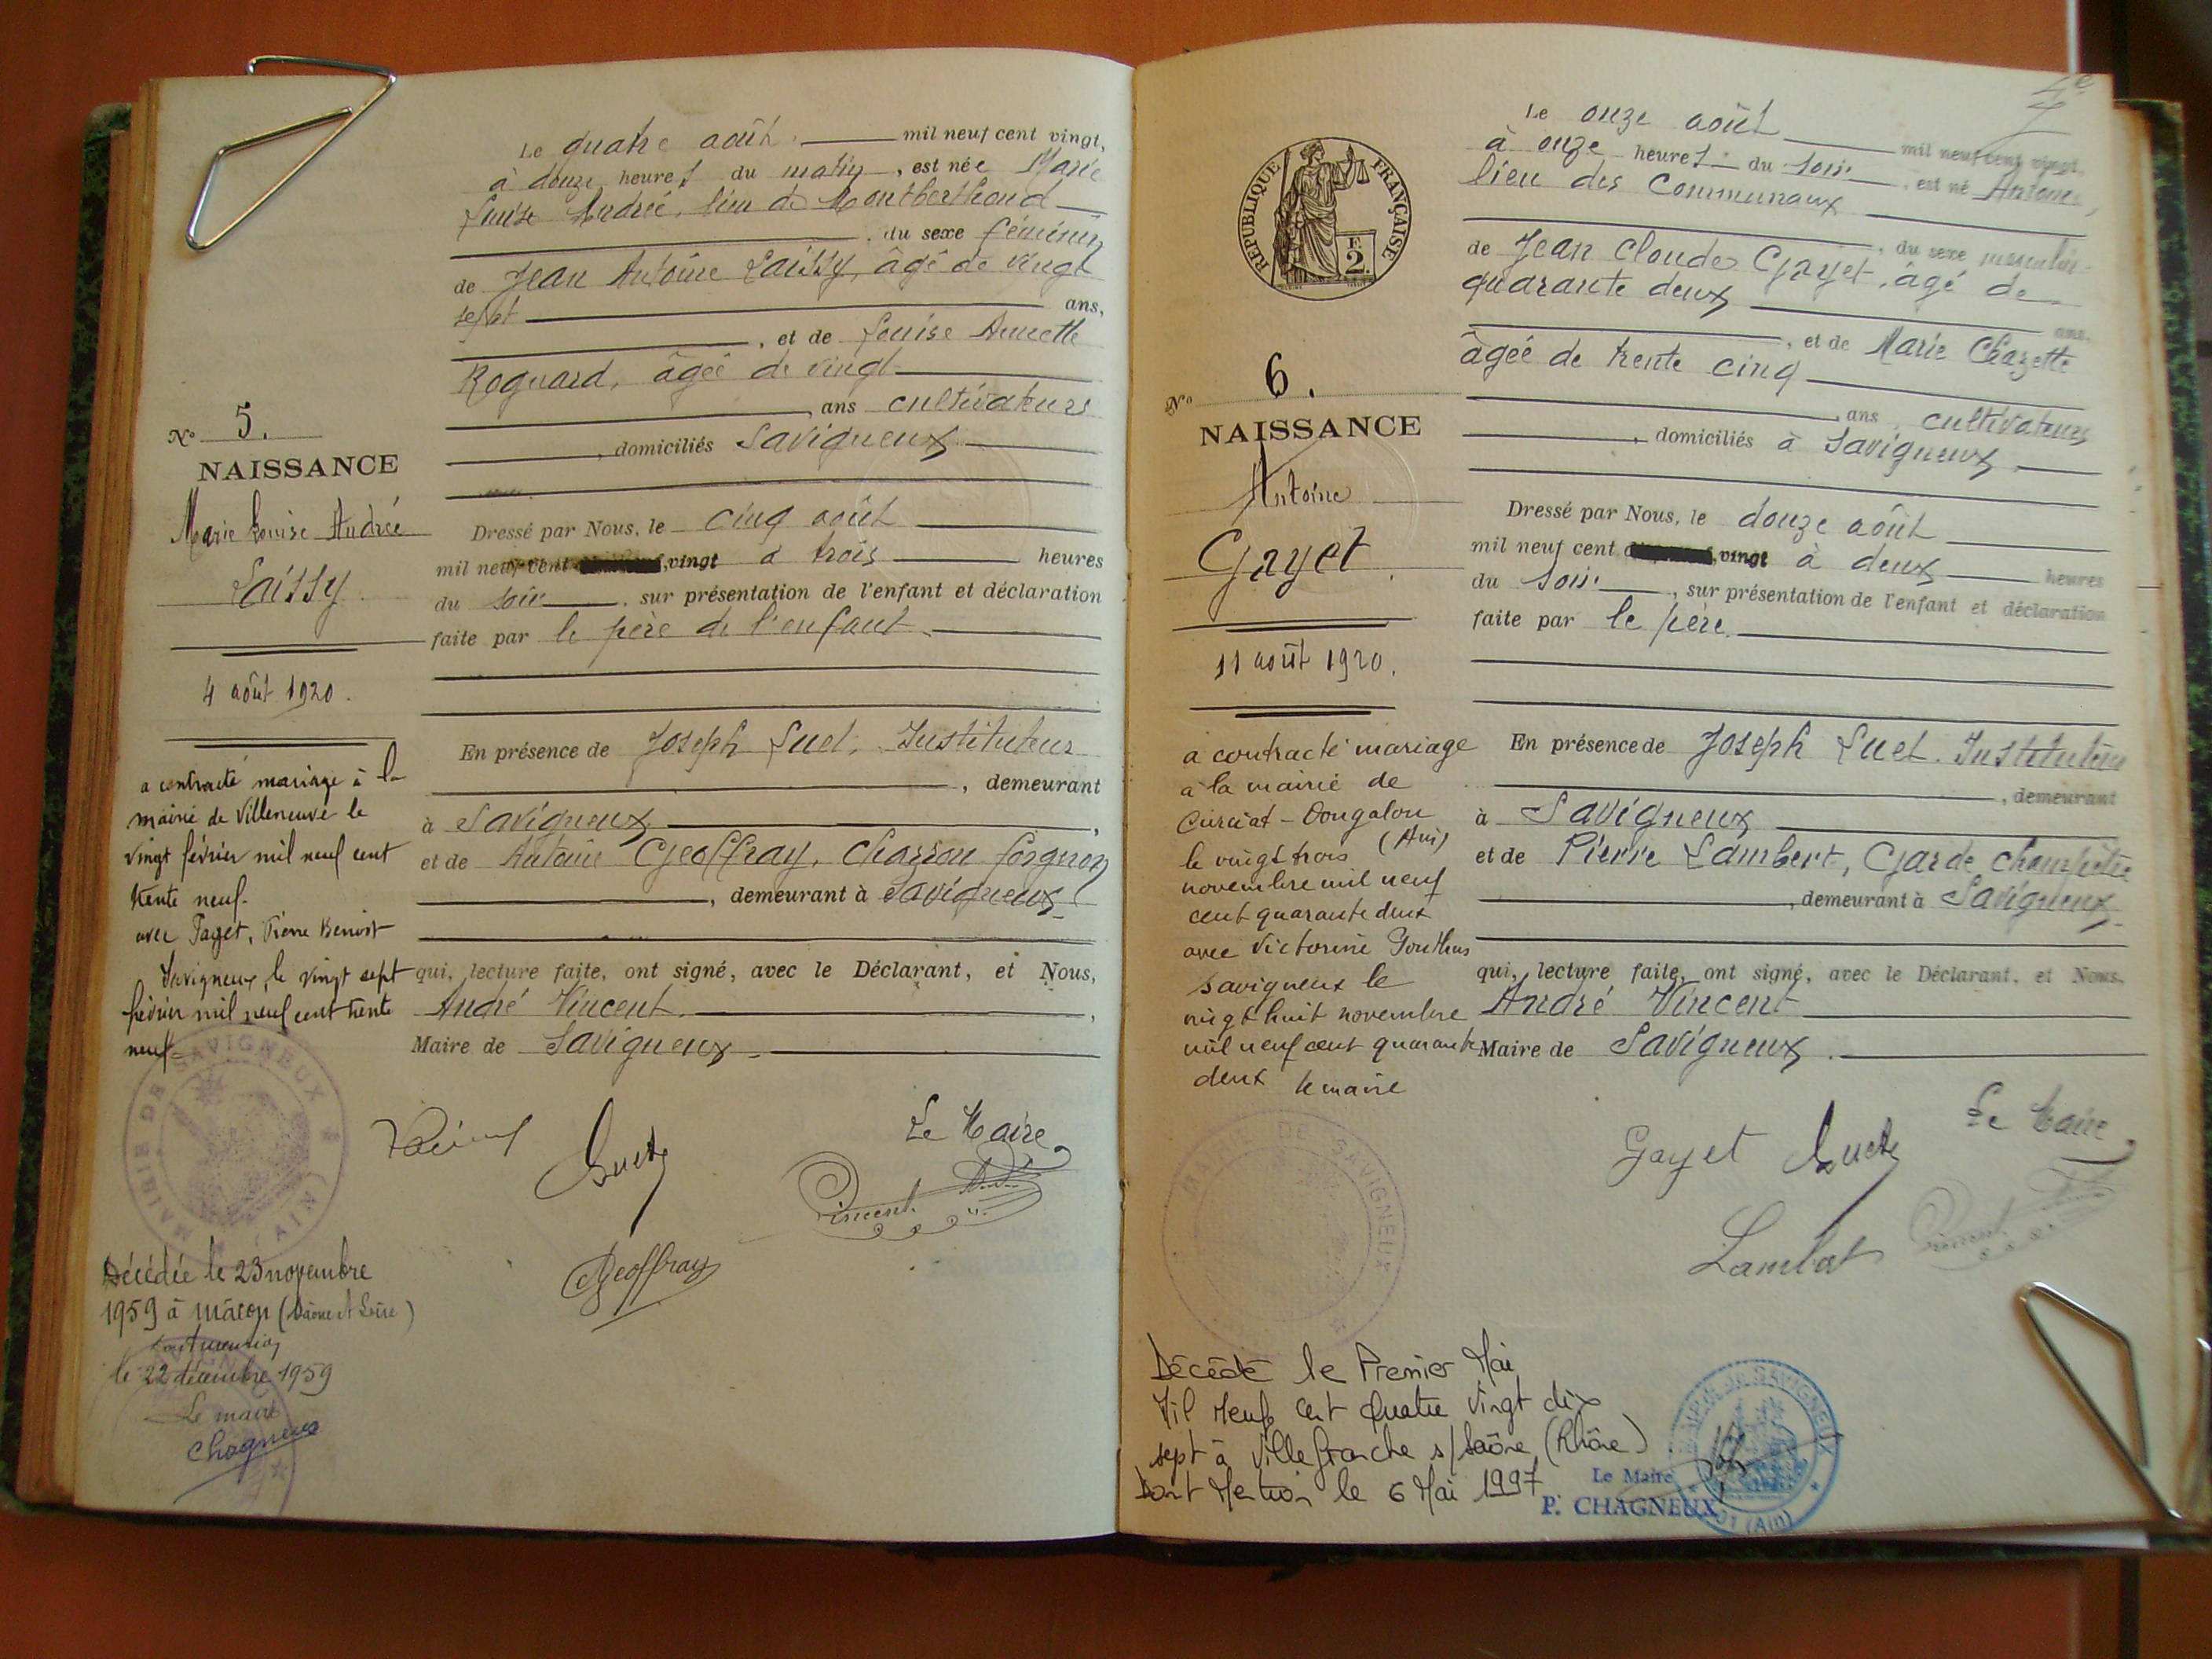 Le quatre août mil neuf cent vingt,
à douze heures du matin, est née Marie
Louise Andrée, lieu de Montberthond
, du sexe féminin
de Jean Antoine Laissy, âgé de vingt
sept ans,
, et de Louise Annette
Roguard, âgée de vingt
ans cultivateurs
, domiciliés Savigneux
N° 5.
NAISSANCE
Marie Louise Andrée
Laissy
4 août 1920.
Dressé par Nous, le cinq août
mil neuf cent vingt à trois heures
du soir, sur présentation de l'enfant et déclaration
faite par le père de l'enfant.
En présence de Joseph Luet, Instituteur
, demeurant
à Savigneux,
et de Antoine Geoffray, Charron forgeron
, demeurant à Savigneux
qui, lecture faite, ont signé, avec le Déclarant, et Nous,
André Vincent,
Maire de Savigneux
a contracté mariage à la
mairie de Villeneuve le
vingt février mil neuf cent
trente neuf
avec Paget, Pierre Benoit
Savigneux, le vingt sept
février mil neuf cent trente
neuf
MAIRIE DE SAVIGNEUX (AIN)
Luet
Le Maire
Vincent
Geoffray
Décédée le 23 novembre
1959 à Mâcon (Saône et Loire)
dont mention
le 22 décembre 1959
Le maire
Chagneux
4e
Le onze août mil neuf cent vingt,
à onze heures du soir, est né Antoine,
lieu des Communaux
, du sexe masculin
de Jean Claude Gayet, âgé de
quarante deux ans,
, et de Marie Chazette
âgée de trente cinq
ans, cultivateurs
, domiciliés à Savigneux
RÉPUBLIQUE FRANÇAISE
2
N° 6.
NAISSANCE
Antoine
Gayet.
11 août 1920.
Dressé par Nous, le douze août
mil neuf cent vingt à deux heures
du soir, sur présentation de l'enfant et déclaration
faite par le père.
En présence de Joseph Luet. Instituteur
, demeurant
à Savigneux
et de Pierre Lambert, Garde champêtre
, demeurant à Savigneux
qui, lecture faite, ont signé, avec le Déclarant, et Nous,
André Vincent
Maire de Savigneux.
a contracté mariage
à la mairie de
Curciat-Dongalon
(Ain)
le vingt trois
novembre mil neuf
cent quarante deux
avec Victorine
Savigneux le
vingt huit novembre
mil neuf cent quarante
deux le maire
MAIRIE DE SAVIGNEUX
Gayet Luet
Le Maire
Vincent
Lambert
Décédé le Premier Mai
Mil Neuf Cent Quatre Vingt dix
sept à Villefranche s/Saône (Rhône)
Dont Mention le 6 Mai 1997
Le Maire
P. CHAGNEUX
MAIRIE de SAVIGNEUX
01 (Ain)